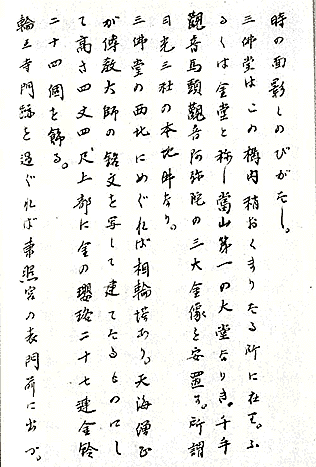 時の面影しのびがたし。
三佛堂はこの構内稍おくまりたる所に在す。ふ
るくは金堂と称し當山第一の大堂なりき。千手
觀音馬頭觀音阿弥陀の三大金像を安置す。所謂
日光三社の本地佛なり。
三佛堂の西北にめぐれば相輪塔あり。天海僧正
が傳教大師の銘文を写して建てたるものにし
て高さ四丈四尺上部に金の瓔珞二十七連金鈴
二十四個を飾る。
輪王寺門跡を過ぐれば東照宮の表門前に出づ。